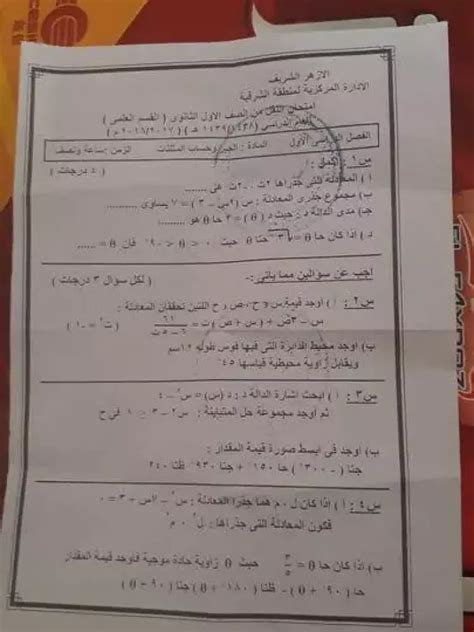 الازهر الشريف
الادارة المركزية لمنطقة الشرقية
امتحان النقل من الصف الاول الثانوى ( القسم العلمى )
للعام الدراسى ( ١٤٣٨/ ١٤٣٩ هـ ) ( ٢٠١٧/ ٢٠١٨ م )
الفصل الدراسى الأول المادة : الجبر وحساب المثلثات الزمن :ساعة ونصف
س١ : اكمل : ( درجات )
أ ) المعادلة التى جذراها ٢ت ، -٢ت هى .....
ب) مجموع جذرى المعادلة : س (٢س – ٣) = ٧ يساوى .........
جـ) مدى الدالة د : حيث د (θ) = ٣ حا θ هو ........
د ) اذا كان حا θ = جتا θ حيث ٠ < θ < ٩٠ فان θ = .....
اجب عن سؤالين مما يأتى :- ( لكل سؤال ٣ درجات )
س٢ : أ ) أوجد قيمة س و ص ، ص و ح اللتين تحققان المعادلة :
س – ٣ص + ( س + ص ) ت = ٦١ / ٦ – ٥ت
ب) أوجد محيط الدائرة التى فيها قوس طوله ١٢سم
ويقابل زاوية محيطية قياسها ٤٥
س٣ : أ ) ابحث اشارة الدالة د : د (س) = س٢ – ٤
ثم أوجد مجموعة حل المتباينة : س٢ – ٣ ≥ ١ فى ح
ب) أوجد فى ابسط صورة قيمة المقدار :
جتا ( – ٣٠٠ ) حا ١٥٠ + جتا ٩٣٠ ظتا ٢٤٠
س٤ : أ ) اذا كان ل ، م هما جذرا المعادلة : س٢ – ٧س + ٣ = ٠
فكون المعادلة التى جذراها : ل٢ ، م٢
ب) اذا كان حا θ = ٣/٥ حيث θ زاوية حادة موجبة فاوجد قيمة المقدار
حا ( ٩٠ + θ ) – ظتا ( ١٨٠ + θ ) جتا ( ٩٠ + θ )